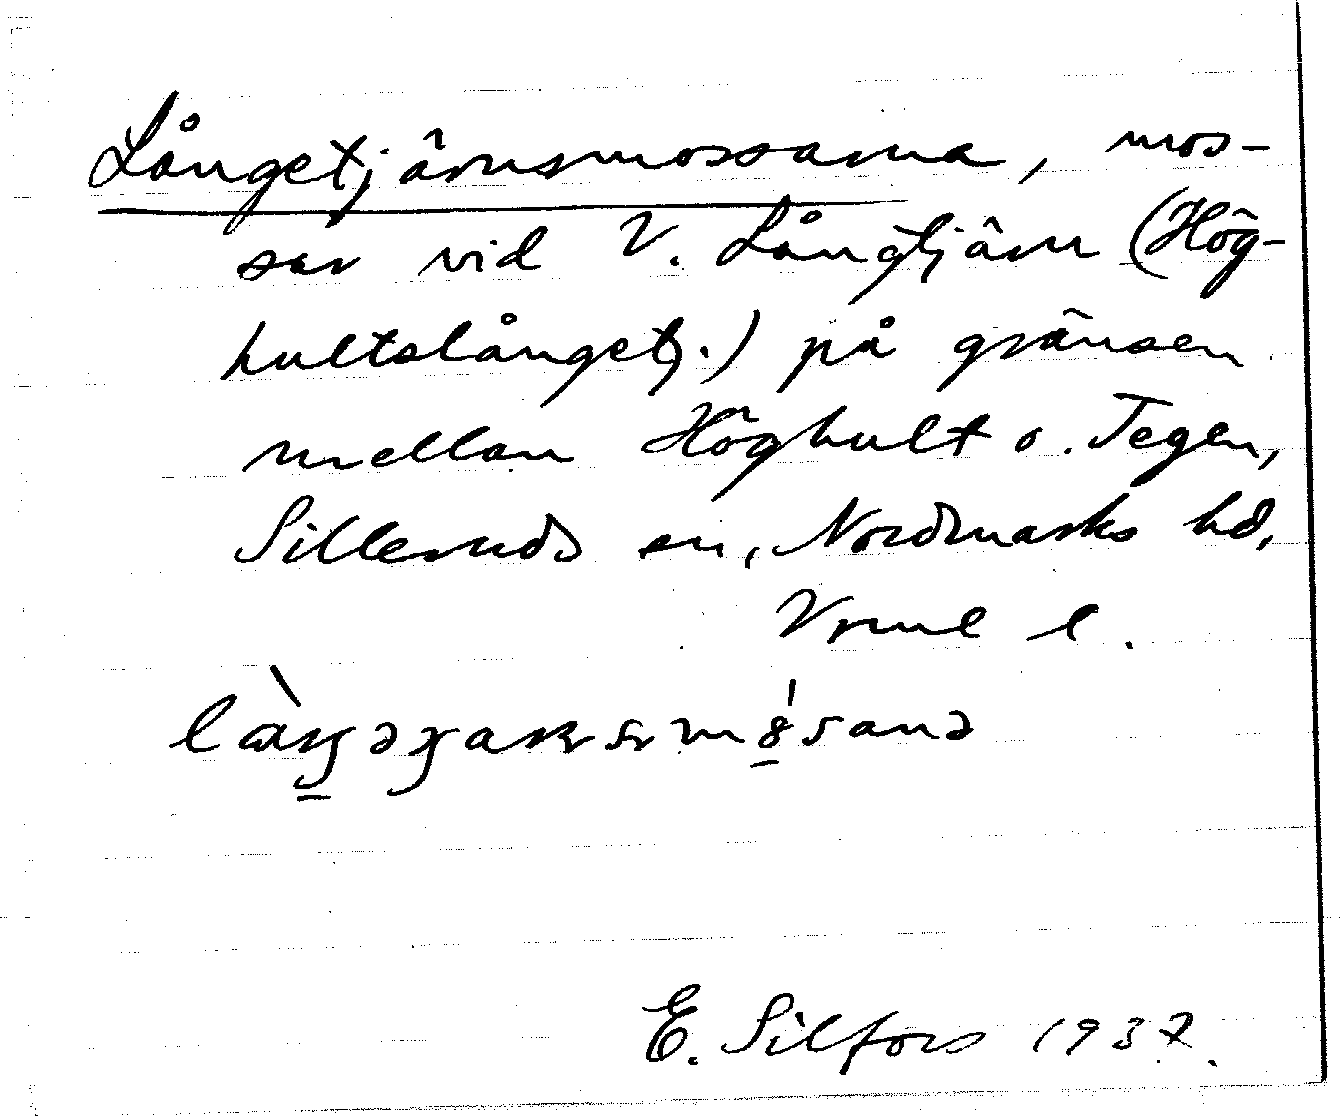 Långetjärnsmossarna, mos-
sar vid V. Långtjärn (Hög-
hultslångetj.) på gränsen
mellan Höghult o. Tegen,
Silleruds sn, Nordmarks hd,
Vrml l.
E. Silfors 1937.